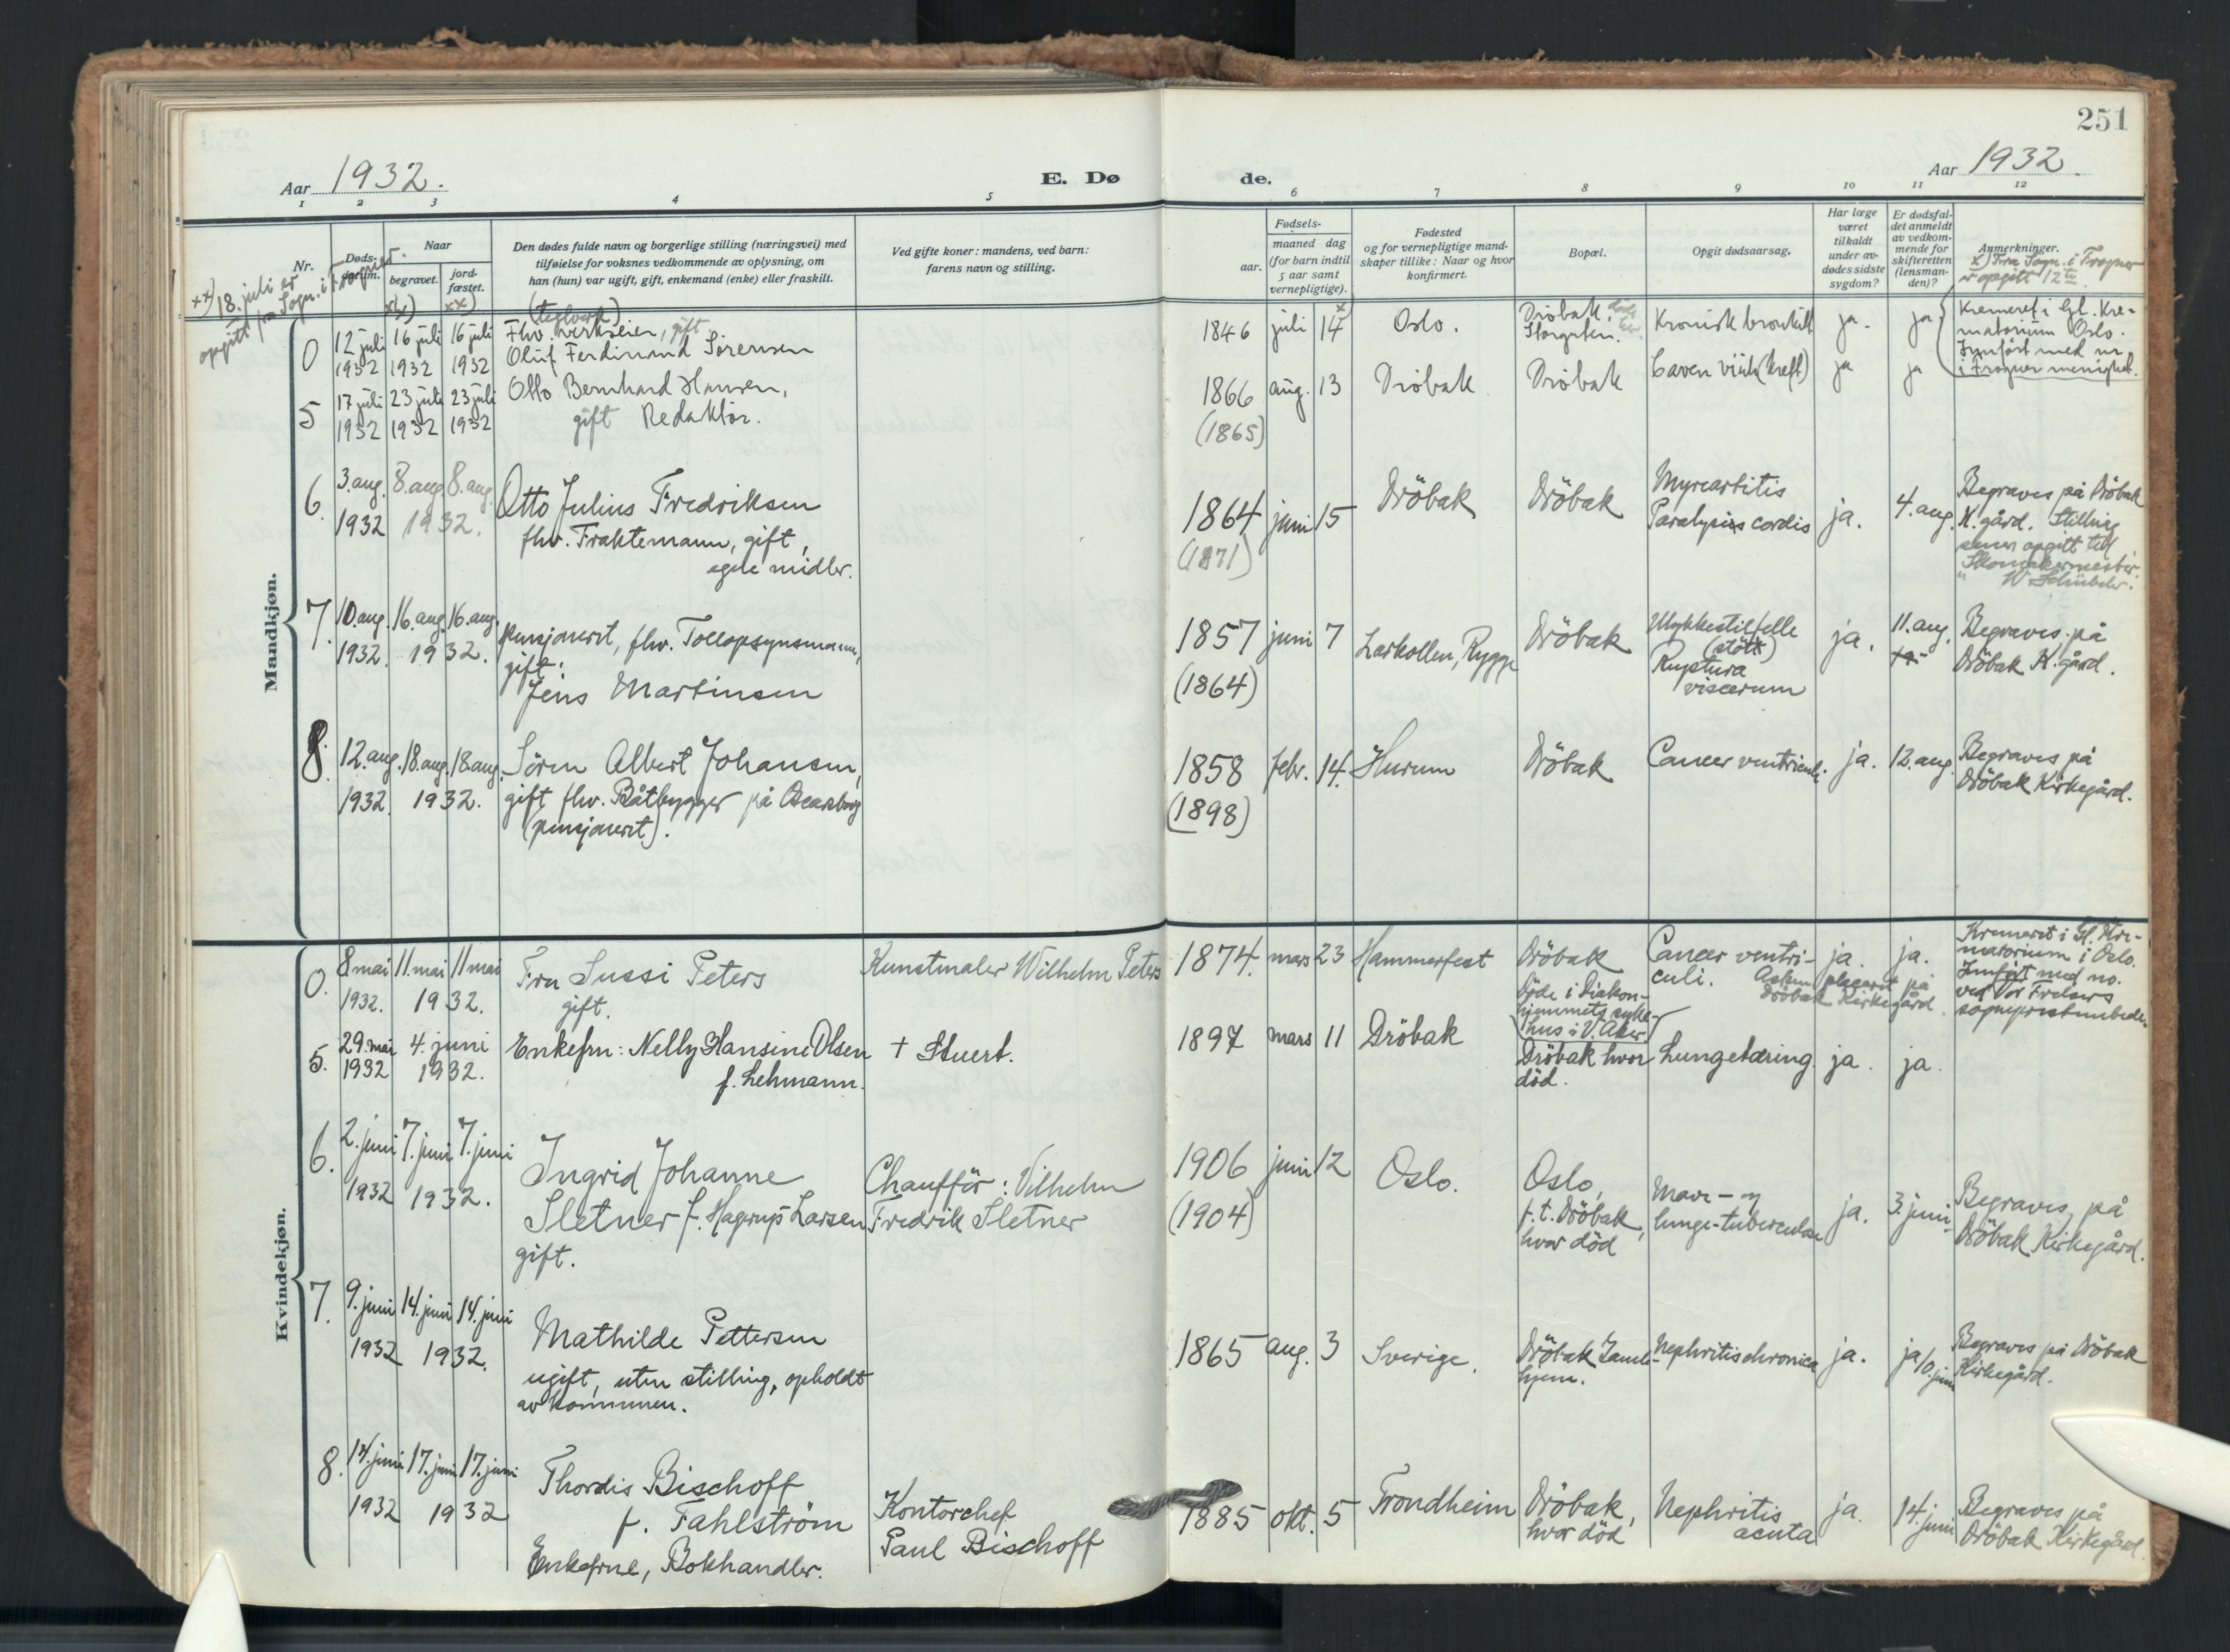 251
Aar 1932.
E. Dø
de.
Aar 1932.
1 2 3 4 5 6 7 8 9 10 11 12
Nr.
Døds-
datum.
Naar
begravet.
jord-
fæstet.
Den dødes fulde navn og borgerlige stilling (næringsvei) med
tilføielse for voksnes vedkommende av oplysning, om
han (hun) var ugift, gift, enkemand (enke) eller fraskilt.
Ved gifte koner: mandens, ved barn:
farens navn og stilling.
Fødsels-
aar.
maaned dag
(for barn indtil
5 aar samt
vernepligtige).
Fødested
og for vernepligtige mand-
skaper tillike: Naar og hvor
konfirmert.
Bopæl.
Opgit dødsaarsag.
Har læge
været
tilkaldt
under av-
dødes sidste
sygdom?
Er dødsfal-
det anmeldt
av vedkom-
mende for
skifteretten
(lensman-
den)?
Anmerkninger.
x) Fra Sogn. i Frogner
er opgitt 12te
xx) 18. juli er
opgitt fra Sogn. i Frogner.
Mandkjøn.
xx) xx) (teglverk)
0 12 juli 16 juli 16 juli Fhv. verkseier, gift
1932 1932 1932 Oluf Ferdinand Sørensen
1846 juli 14 x Oslo. Drøbak,
Storgaten. Kronisk bronkitt ja. ja
Kremeret i Gl. Kre-
matorium Oslo.
Innført med nr.
i Frogner menighet.
5 17 juli 23 juli 23 juli Otto Bernhard Hansen,
1932 1932 1932 gift Redaktør.
1866 aug. 13 Drøbak Drøbak (kreft) ja ja
(1865)
6. 3. aug. 8. aug. 8. aug. Otto Julius Fredriksen
1932 1932. fhv. Fraktemann, gift,
egne midler.
1864 juni 15 Drøbak Drøbak Myocartitis
Paralysis cordis ja. 4. aug.
(1871)
Begraves på Drøbak
K.gård. Stilling
senere opgitt til
Skomakermester.
W. Schübeler.
7. 10. aug. 16. aug. 16. aug. pensjonert, fhv. Tollopsynsmann,
1932. 1932. gift:
Jens Martinsen
1857 juni 7 Larkollen, Rygge Drøbak Ulykkestilfelle
(støtt)
Ruptura
viscerum ja. 11. aug.
(1864)
Begraves på
Drøbak K.gård.
8. 12. aug. 18. aug. 18. aug. Søren Albert Johansen,
1932. 1932. gift fhv. Båtbygger på Oscarsborg
(pensjonert).
1858 febr. 14. Hurum Drøbak Cancer ventriculi. ja. 12. aug.
(1898)
Begraves på
Drøbak Kirkegård.
Kvindekjøn.
0. 8 mai 11. mai 11 mai Fru Sussi Peters Kunstmaler Wilhelm Peters
1932. 1932. gift.
1874. mars 23 Hammerfest Drøbak
Døde i Diakon-
hjemmets syke-
hus i V. Aker
Cancer ventri-
culi. ja. ja.
Asken plassert på
Drøbak Kirkegård.
Kremeret i Gl. Kre-
matorium i Oslo.
Innført med no.
ved Vor Frelsers
sogneprestembede.
5. 29. mai 4. juni Enkefru: Nelly Hansine Olsen + Stuert.
1932 1932. f. Lehmann.
1897 mars 11 Drøbak Drøbak hvor
død. Lungetæring. ja. ja.
6. 2. juni 7. juni 7. juni Ingrid Johanne Chauffør: Vilhelm
1932 1932. Sletner f. Hagerup Larsen Fredrik Sletner
gift.
1906 juni 12 Oslo. Oslo,
f.t. Drøbak,
hvor død
Mave- og
lunge-tuberculose ja. 3. juni
(1904)
Begraves på
Drøbak Kirkegård.
7. 9. juni 14. juni 14. juni Mathilde Pettersen
1932 1932. ugift, uten stilling, opholdt
av kommunen.
1865 aug. 3 Sverige. Drøbak Gamle-
hjem. Nephritis chronica ja. ja 10. juni
Begraves på Drøbak
Kirkegård.
8. 14. juni 17. juni 17. juni Thordis Bischoff
1932 1932 f. Fahlstrøm Kontorchef
Enkefrue, Bokhandler. Paul Bischoff
1885 okt. 5 Trondheim Drøbak,
hvor død Nephritis
acuta ja. 14. juni
Begraves på
Drøbak Kirkegård.